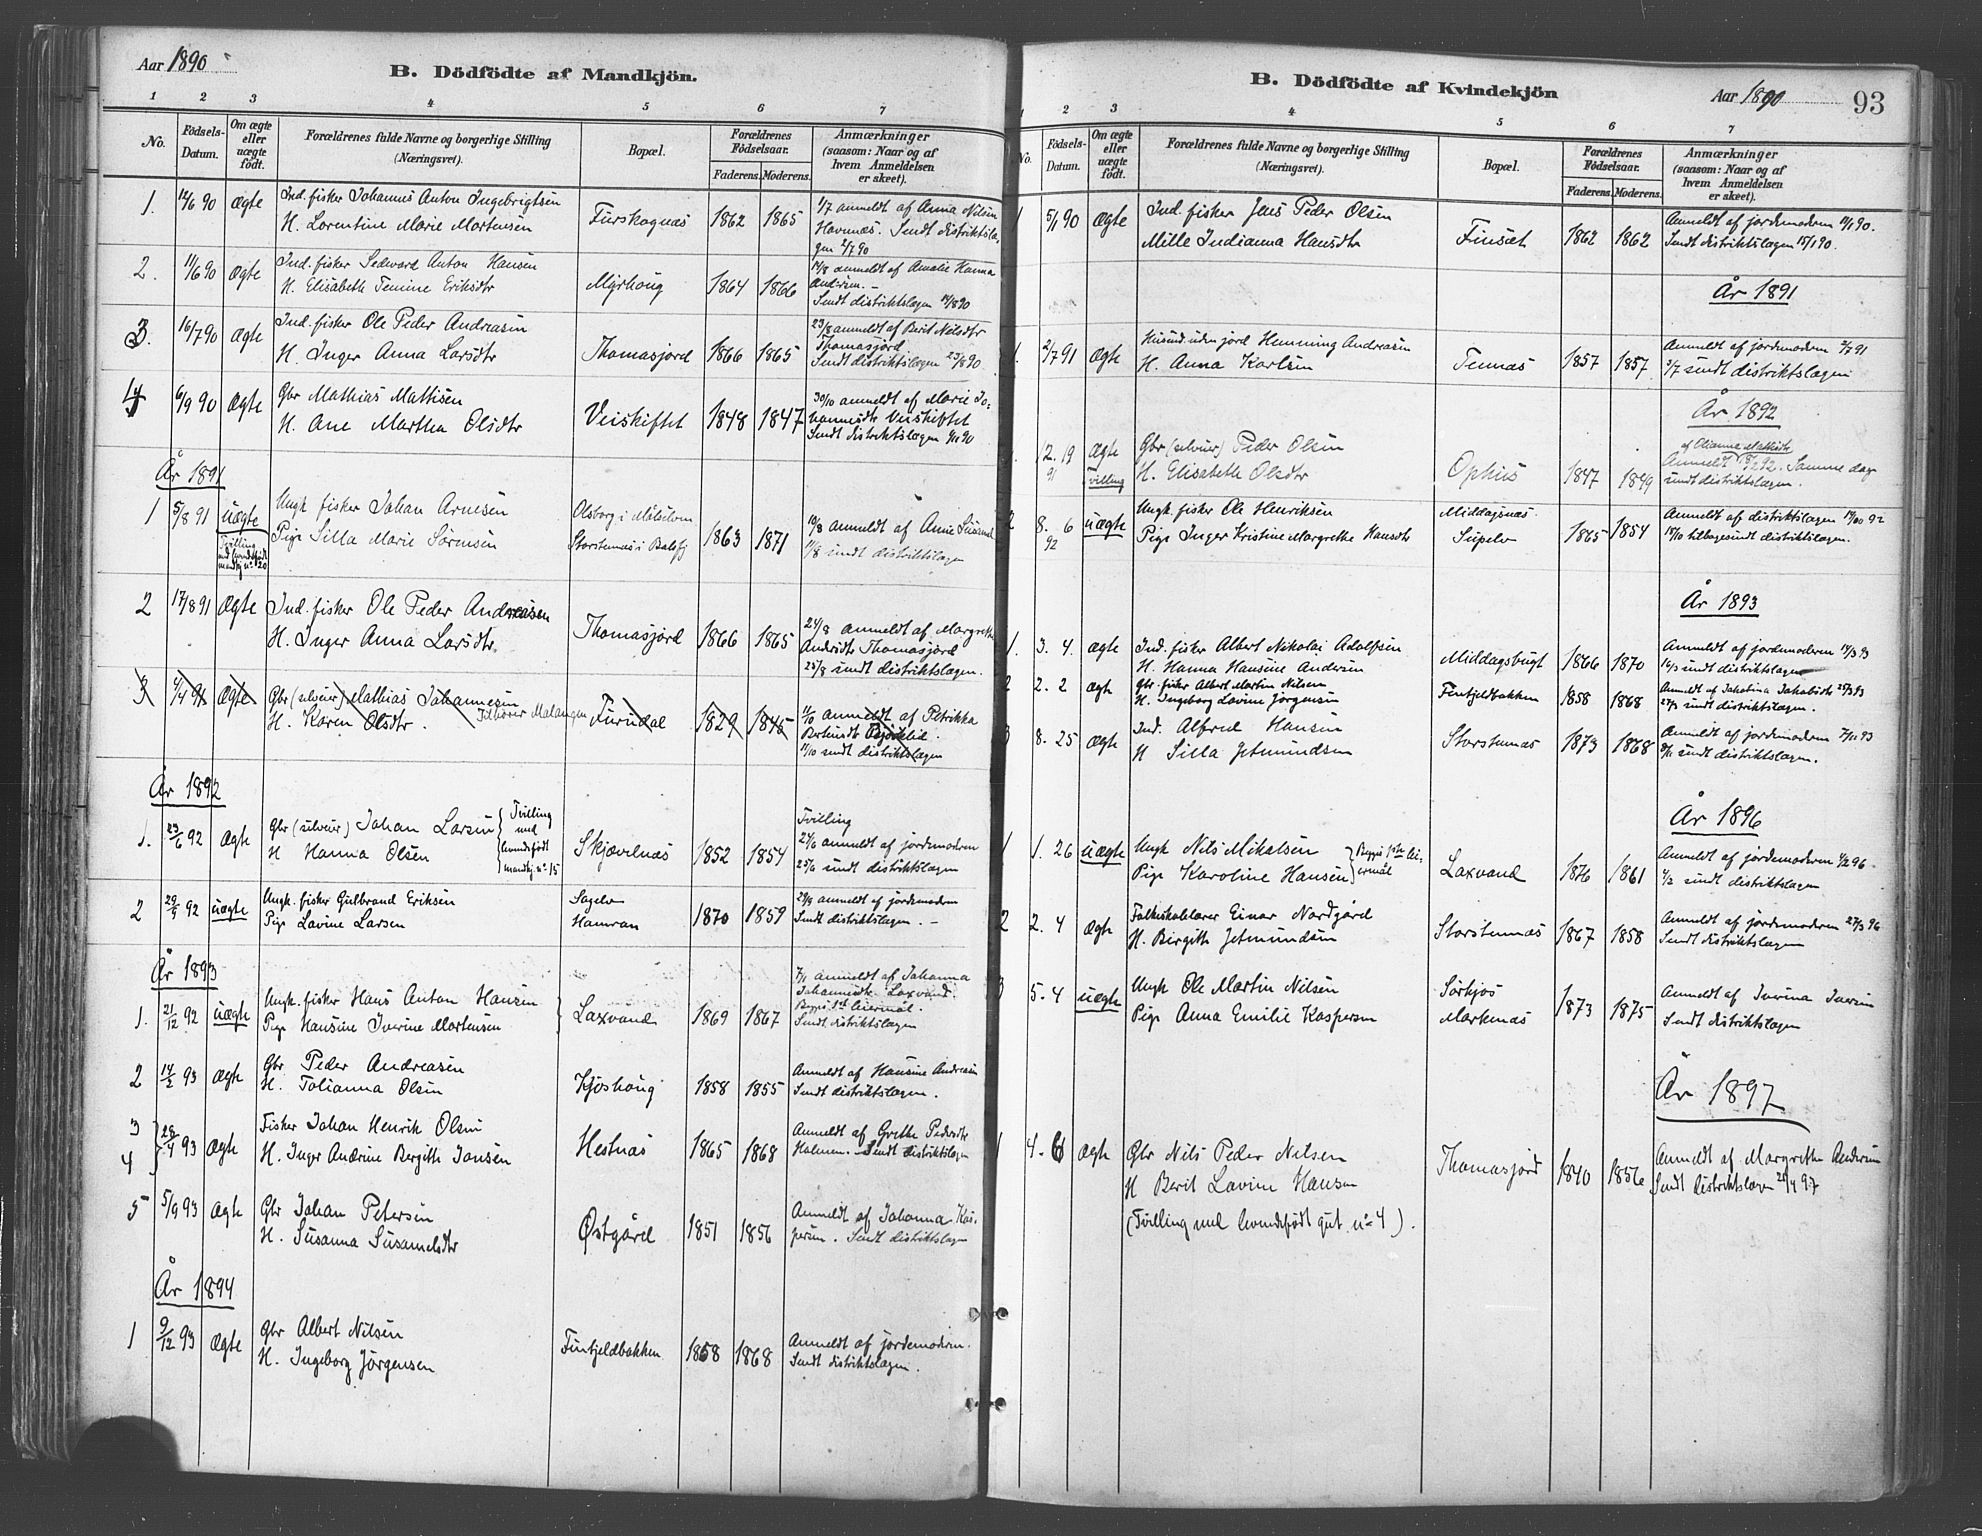 Aar 1890
B. Dödfödte af Mandkjön.
1 2 3 4 5 6 7
No.
Födsels-Datum.
Om ægte eller uægte födt.
Forældrenes fulde Navne og borgerlige Stilling
(Næringsvei).
Bopæl.
Forældrenes Födselsaar.
Faderens. Moderens.
Anmærkninger
(saasom: Naar og af
hvem Anmeldelsen
er skeet).
1. 12/6 90 Ægte Ind. fisker Johannes Anton Ingebrigtsen
H. Lorentine Marie Mortensen
Furskognæs 1862 1865
1/7 anmeldt af Anna Nilsen
Havnnæs. Sendt distriktslæ-
gen 2/7 90
2. 11/6 90 Ægte Ind. fisker Sedvard Anton Hansen
H. Elisabeth Temine Eriksdtr
Myrhoug 1864 1866
14/8 anmeldt af Amalie Hanna
Andersen. –
Sendt distriktslægen 14/8 90
3. 16/7 90 Ægte Ind. fisker Ole Peder Andreasen
H. Inger Anna Larsdtr
Thomasjord 1866 1865
23/8 anmeldt af Berit Nilsdtr
Thomasjord.
Sendt distriktslægen 23/8 90
4 6/9 90 Ægte Gbr Mathias Mattisen
H. Ane Martha Olsdtr
Veiskiftet 1848 1847
30/10 anmeldt af Marie Jo-
hannesdtr Veiskiftet
Sendt distriktslægen
År 1891
1 5/8 91 uægte Ungk. fisker Johan Arnesen
Pige Silla Marie Sörensen
Tvilling
med levendefödt
mandkj nº 20
Olsborg i Målselven
Storstennæs i Balsfj
1863 1871
10/8 anmeldt af Anne
11/8 sendt distriktslægen
2 17/8 91 Ægte Ind. fisker Ole Peder Andreasen
H. Inger Anna Larsdtr.
Thomasjord 1866 1865
24/8 anmeldt af Margrethe
Andersdtr Thomasjord
25/8 sendt distriktslægen.
3 4/4 91 Ægte Gbr (selveier) Mathias Johannesen
H. Karen Olsdtr. Tilhører Malangen
Furudal 1829 1845
11/10 anmeldt af Petrikka
Berteusdtr Bjørklid.
11/10 sendt distriktslægen
År 1892
1. 23/6 92 Ægte Gbr (selveier) Johan Larsen
H Hanna Olsen
Tvilling
med
levendefödt
mandkj. nº 15
Skjævelnæs 1852 1854
Tvilling
24/6 anmeldt af jordemoderen
25/6 sendt distriktslægen
2 29/9 92 uægte Ungk. fisker Gulbrand Eriksen
Pige Lavine Larsen
Sagelv
Hamran
1870 1859
29/9 anmeldt af jordemoderen
Sendt distriktslægen. –
År 1893
1. 21/12 92 uægte Ungk. fisker Hans Anton Hansen
Pige Hansine Iverine Mortensen
Laxvand 1869 1867
7/1 anmeldt af Johanna
Johannesdtr Laxvand.
Begges 1ste leiermål.
Sendt distriktslægen
2 14/2 93 Ægte Gbr Peder Andreasen
H. Tolianna Olsen
Kjoshoug 1858 1855
Anmeldt af Hansine Andreasen
Sendt distriktslægen.
3
4 28/4 93 Ægte Fisker Johan Henrik Olsen
H. Inger Andrine Bergitte Jonsen
Hestnæs 1865 1868
Anmeldt af Grethe Pedersdtr
Holmen. Sendt distriktslægen
5 5/9 93 Ægte Gbr Johan Petersen
H. Susanna Susamelsdtr
Østgård 1851 1856
Anmeldt af Johanna Kas-
persen. Sendt distriktslægen
År 1894
1 9/12 93 Ægte Gbr Albert Nilsen
H. Ingeborg Jörgensen
Fintjeldbakken 1858 1868
Anmeldt af jordemoderen.
Sendt distriktslægen.
B. Dödfödte af Kvindekjön
Aar 1890 93
1 2 3 4 5 6 7
No.
Födsels-Datum.
Om ægte eller uægte födt.
Forældrenes fulde Navne og borgerlige Stilling
(Næringsvei).
Bopæl.
Forældrenes Födselsaar.
Faderens. Moderens.
Anmærkninger
(saasom: Naar og af
hvem Anmeldelsen
er skeet).
1 5/1 90 Ægte Ind. fisker Jens Peder Olsen
Mille Indianna Hansdtr
Finsæt 1862 1862
Anmeldt af jordemoderen 11/1 90.
Sendt distriktslægen 15/1 90.
År 1891
1. 2/7 91 Ægte Husmd. uden jord Hemming Andreasen
H. Anna Karlsen
Tennæs 1857 1857
Anmeldt af jordemoderen 3/7 91
3/7 sendt distriktslægen
År 1892
2. 19 91 Ægte
Tvilling
Gbr (selveier) Peder Olsen
H. Elisabeth Olsdtr
Ophus 1847 1849
af Olianna Mathisdtr
Anmeldt 18/2 92. Samme dag
sendt distriktslægen.
2 8. 6 92 uægte Ungk. fisker Ole Henriksen
Pige Inger Kristine Margrethe Hansdtr
Middagsnæs.
Sipelv
1865 1854
Anmeldt af distriktslægen 14/10 92
15/10 tilbagesendt distriktslægen.
År 1893
1. 3. 4. Ægte Ind. fisker Albert Nikolai Adolfsen
H. Hanna Hansine Andersen
Middagsbugt 1866 1870
Anmeldt af jordemoderen 14/3 93
14/3 sendt distriktslægen
2 2. 2 Ægte Gbr. fisker Albert Martin Nilsen
H. Ingeborg Lavine Jörgensen
Fintjeldbakken 1858 1868
Anmeldt af Jakobina Jakobsdtr 27/3 93
27/3 sendt distriktslægen.
3 8. 25 Ægte Ind. Alfred Hansen
H Silla Jetmundsen
Storstennæs 1873 1868
Anmeldt af jordemoderen 7/11 93
8/11 sendt distriktslægen.
År 1896
1 1. 26 uægte Ungk Nils Mikalsen
Pige Karoline Hansen
Begges 1ste lei-
ermål
Laxvand 1876 1861
Anmeldt af jordemoderen 4/2 96 –
4/2 sendt distriktslægen
2 2. 4 Ægte Folkeskolelærer Einar Nordgård
H. Birgitte Jetmundsen
Storstennæs 1867 1858
Anmeldt af jordemoderen 27/3 96
Sendt distriktslægen
3 5. 4 uægte Ungk Ole Martin Nilsen
Pige Anna Emilie Kaspersen
Sörkjos
Markenæs
1873 1875
Anmeldt af Iverina Iversen
Sendt distriktslægen
År 1897
1 4. 6 Ægte Gbr Nils Peder Nilsen
H Berit Lavine Hansen
(Tvilling med levendefödt gut nº 4).
Thomasjord 1840 1856
Anmeldt af Margrethe Andersen
Sendt distriktslægen 24/4 97